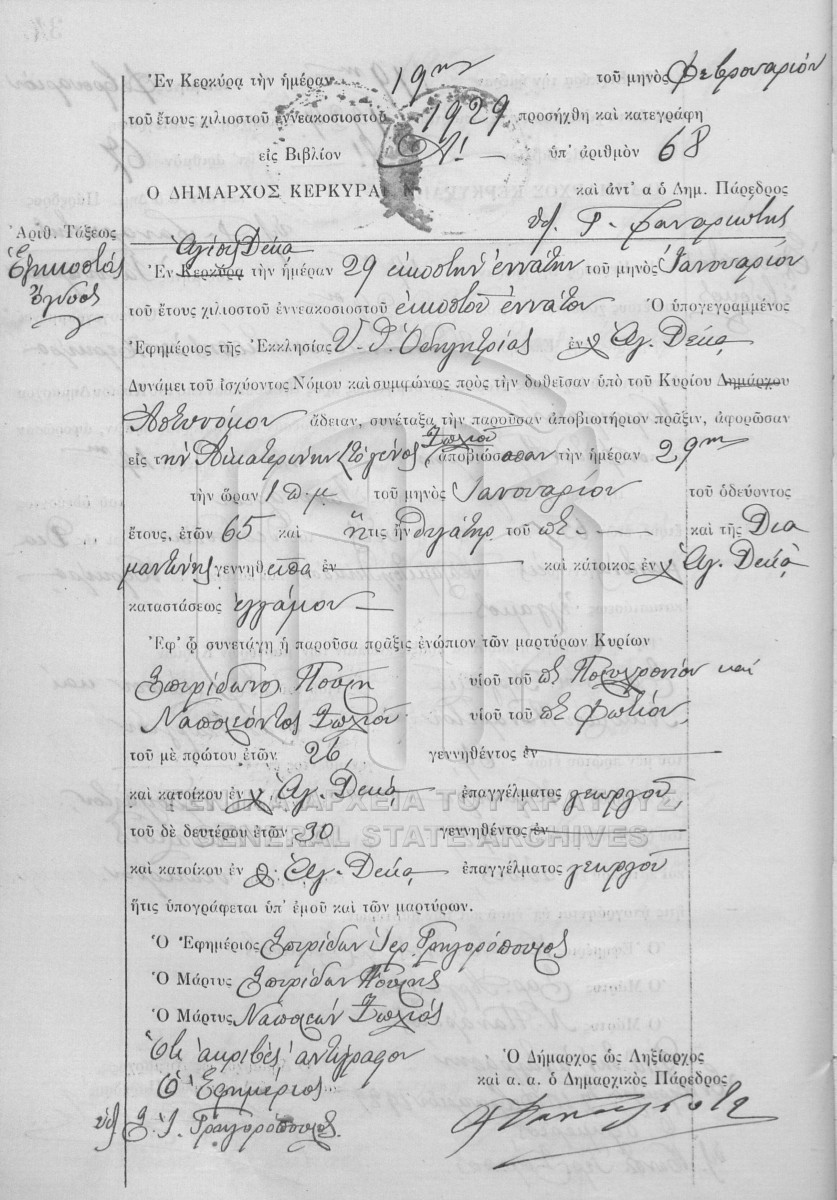 Ἐν Κερκύρᾳ τὴν ἡμέραν 19ην τοῦ μηνὸς Φεβρουαρίου
τοῦ ἔτους χιλιοστοῦ ἐννεακοσιοστοῦ 1929 προσήχθη καὶ κατεγράφη
εἰς Βιβλίον Α! ὑπ' ἀριθμὸν 68
Ο ΔΗΜΑΡΧΟΣ ΚΕΡΚΥΡΑΙΩΝ
καὶ ἀντ' α ὁ Δημ. Πάρεδρος
Γ. Φαναριώτης
Ἀριθ. Τάξεως
Ἁγίοις Δέκα
Ἐν Κερκύρᾳ τὴν ἡμέραν 29 εἰκοστὴν ἐννάτην τοῦ μηνὸς Ἰανουαρίου
τοῦ ἔτους χιλιοστοῦ ἐννεακοσιοστοῦ εἰκοστοῦ ἐννάτου Ὁ ὑπογεγραμμένος
Ἐφημέριος τῆς Ἐκκλησίας Υ. Θ. Ὁδηγητρίας ἐν Ἁγ. Δέκα
Δυνάμει τοῦ ἰσχύοντος Νόμου καὶ συμφώνως πρὸς τὴν δοθεῖσαν ὑπὸ τοῦ Κυρίου Δημάρχου
Ἀστυνόμου ἄδειαν, συνέταξα τὴν παροῦσαν ἀποβιωτήριον πρᾶξιν, ἀφορῶσαν
εἰς τὴν Αἰκατερίνην τὸ γένος ἀποβιώσασαν τὴν ἡμέραν 29ην
τὴν ὥραν 1 π.μ τοῦ μηνὸς Ἰανουαρίου τοῦ ὁδεύοντος
ἔτους, ἐτῶν 65 καὶ ἥτις ἦν θυγάτηρ τοῦ ποτὲ καὶ τῆς Δια
μαντίνης γεννηθεῖσα ἐν καὶ κάτοικος ἐν Ἁγ. Δέκα
καταστάσεως ἐγγάμου
Ἐφ' ᾧ συνετάγη ἡ παροῦσα πρᾶξις ἐνώπιον τῶν μαρτύρων Κυρίων
Σπυρίδωνος Πουρῆ υἱοῦ τοῦ ποτὲ Πολυχρονίου καὶ
Ναπολέοντος υἱοῦ τοῦ ποτὲ Φωτίου
τοῦ μὲ πρώτου ἐτῶν 26 γεννηθέντος ἐν
καὶ κατοίκου ἐν χ. Ἁγ. Δέκα ἐπαγγέλματος γεωργοῦ
τοῦ δὲ δευτέρου ἐτῶν 30 γεννηθέντος ἐν
καὶ κατοίκου ἐν Ἁγ. Δέκα ἐπαγγέλματος γεωργοῦ
ἥτις ὑπογράφεται ὑπ' ἐμοῦ καὶ τῶν μαρτύρων.
Ὁ Ἐφημέριος Σπυρίδων Ἱερ. Γρηγορόπουλος
Ὁ Μάρτυς Σπυρίδων Πουρῆς
Ὁ Μάρτυς Ναπολέων
Ὅτι ἀκριβὲς ἀντίγραφον
Ὁ Ἐφημέριος
Σ. Ι. Γρηγορόπουλος
Ὁ Δήμαρχος ὡς Ληξίαρχος
καὶ α. α. ὁ Δημαρχικὸς Πάρεδρος
ΓΕΝΙΚΑ ΑΡΧΕΙΑ ΤΟΥ ΚΡΑΤΟΥΣ
GENERAL STATE ARCHIVES